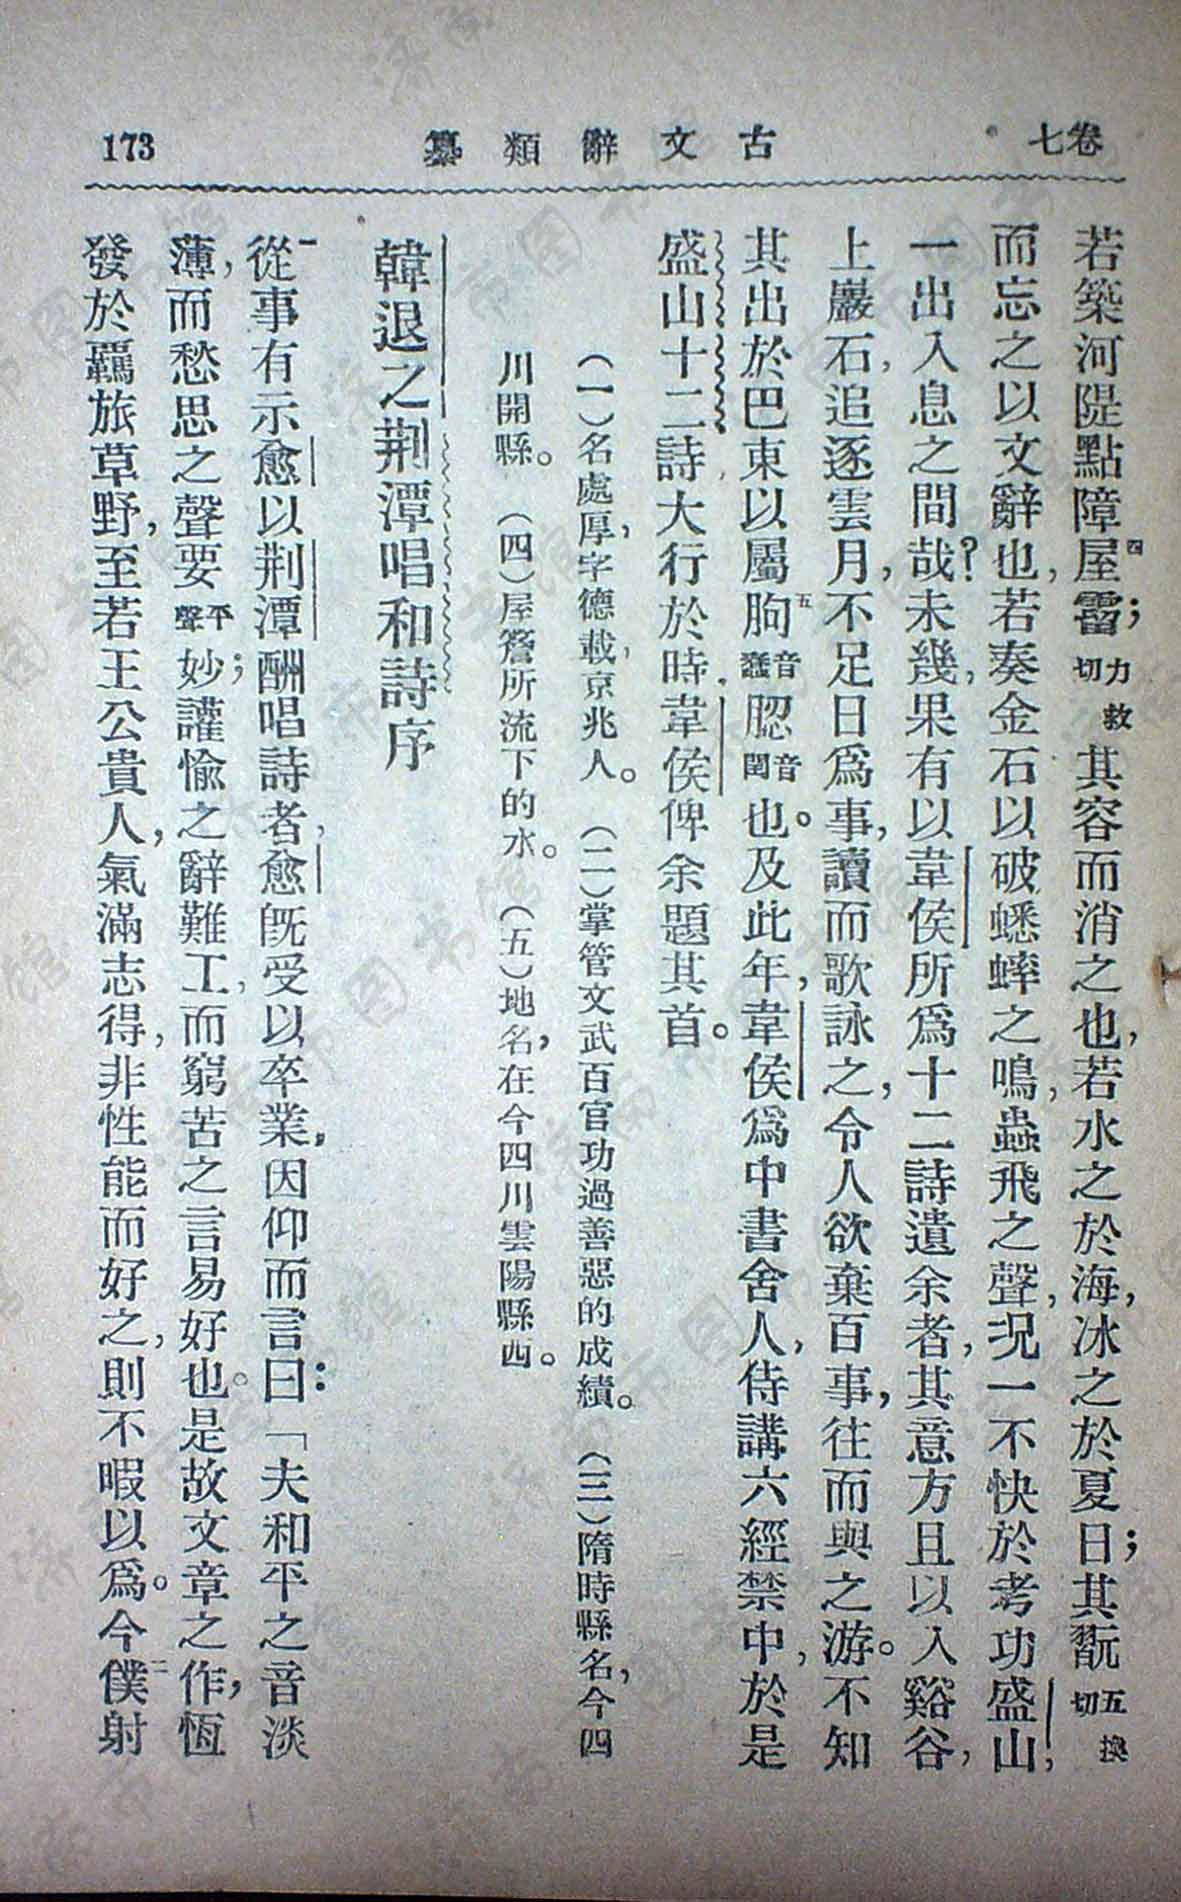 卷七
古文辭類纂
173
若築河隄點障屋霤四；力救切其容而消之也，若水之於海，冰之於夏日；其翫五換切
而忘之以文辭也，若奏金石以破蟋蟀之鳴，蟲飛之聲，況一不快於考功盛山，
一出入息之間哉？未幾，果有以韋侯所爲十二詩遺余者，其意方且以入谿谷，
上巖石，追逐雲月，不足日爲事，讀而歌詠之，令人欲棄百事，往而與之游。不知
其出於巴東以屬朐五音蠢䏰音閏也。及此年，韋侯爲中書舍人，侍講六經禁中，於是
盛山十二詩大行於時，韋侯俾余題其首。
（一）名處厚，字德載，京兆人。（二）掌管文武百官功過善惡的成績。（三）隋時縣名，今四
川開縣。（四）屋簷所流下的水。（五）地名，在今四川雲陽縣西。
韓退之荆潭唱和詩序
從事一有示愈以荆潭酬唱詩者，愈旣受以卒業，因仰而言曰：「夫和平之音淡
薄，而愁思之聲要平聲妙；讙愉之辭難工，而窮苦之言易好也。是故文章之作，恆
發於羈旅草野，至若王公貴人，氣滿志得，非性能而好之，則不暇以爲。今僕二射